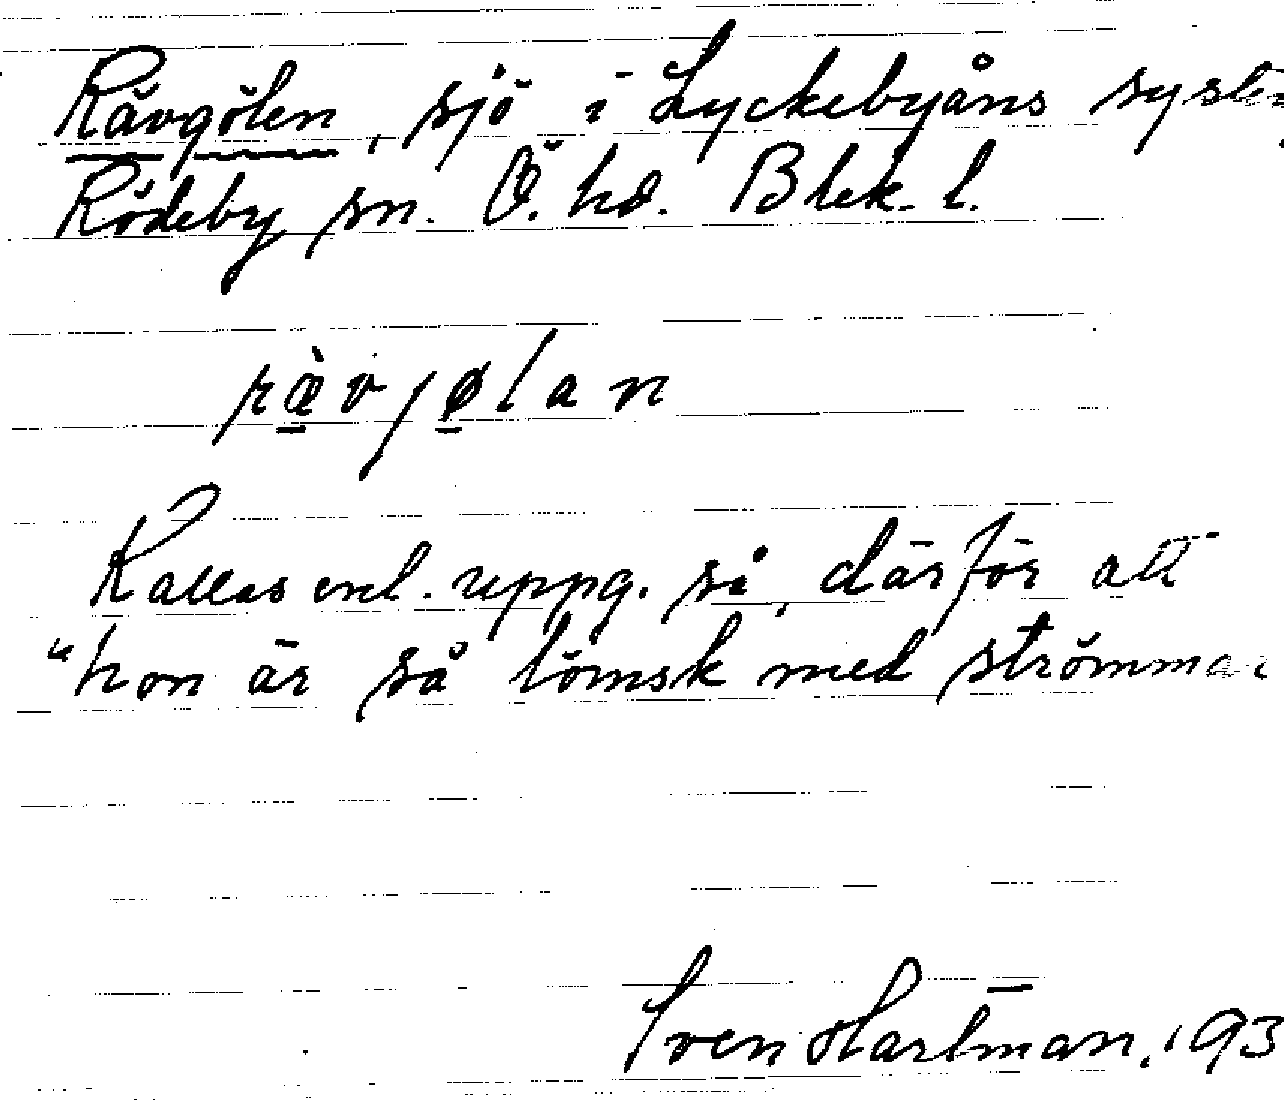 Rävgölen, sjö i Lyckebyåns syste
Rödeby sn. Ö. hd. Blek. l.
rævjølan
Kallas enl. uppg. så, därför att
"hon är så lömsk med strömmar
Sven Hartman. 193